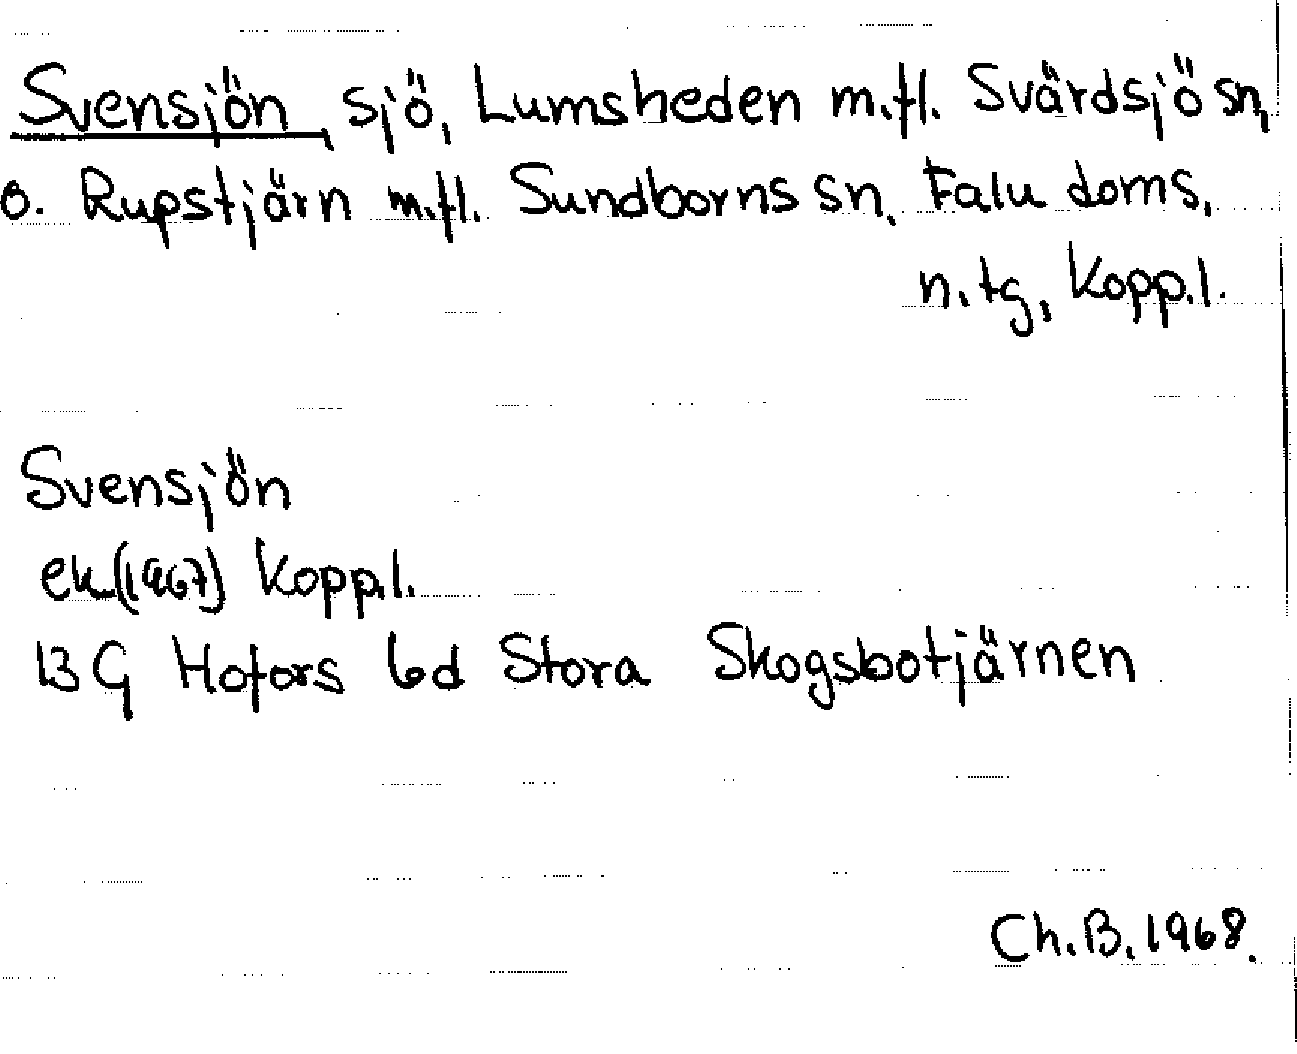 Svensjön, sjö, Lumsheden m.fl. Svärdsjö sn,
o. Rupstjärn m.fl. Sundborns sn, Falu doms,
n.tg, Kopp.l.
Svensjön
ek(1967) Kopp.l.
13 G Hofors 6d Stora Skogsbotjärnen
Ch.B.1968.